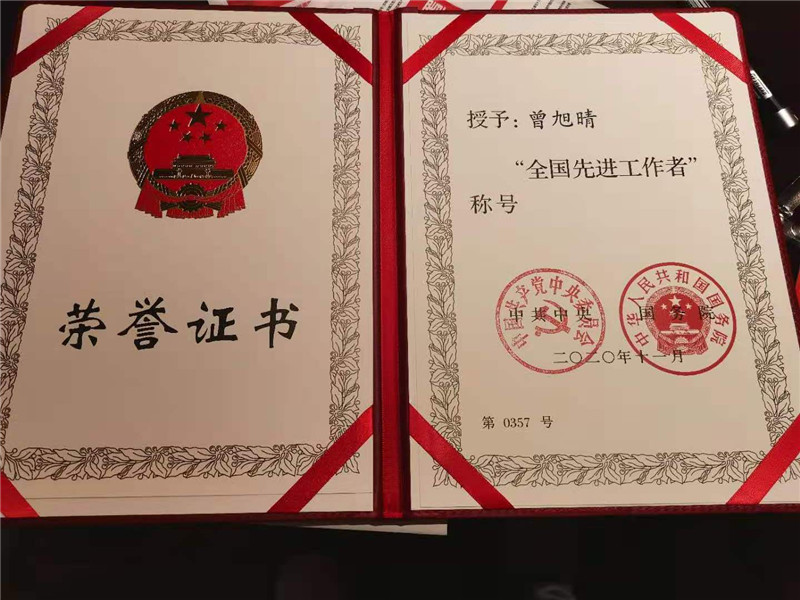 荣誉证书
授予：曾旭晴
“全国先进工作者”
称号
中国共产党中央委员会
中华人民共和国国务院
中共中央 国务院
二〇二〇年十一月
第 0357 号